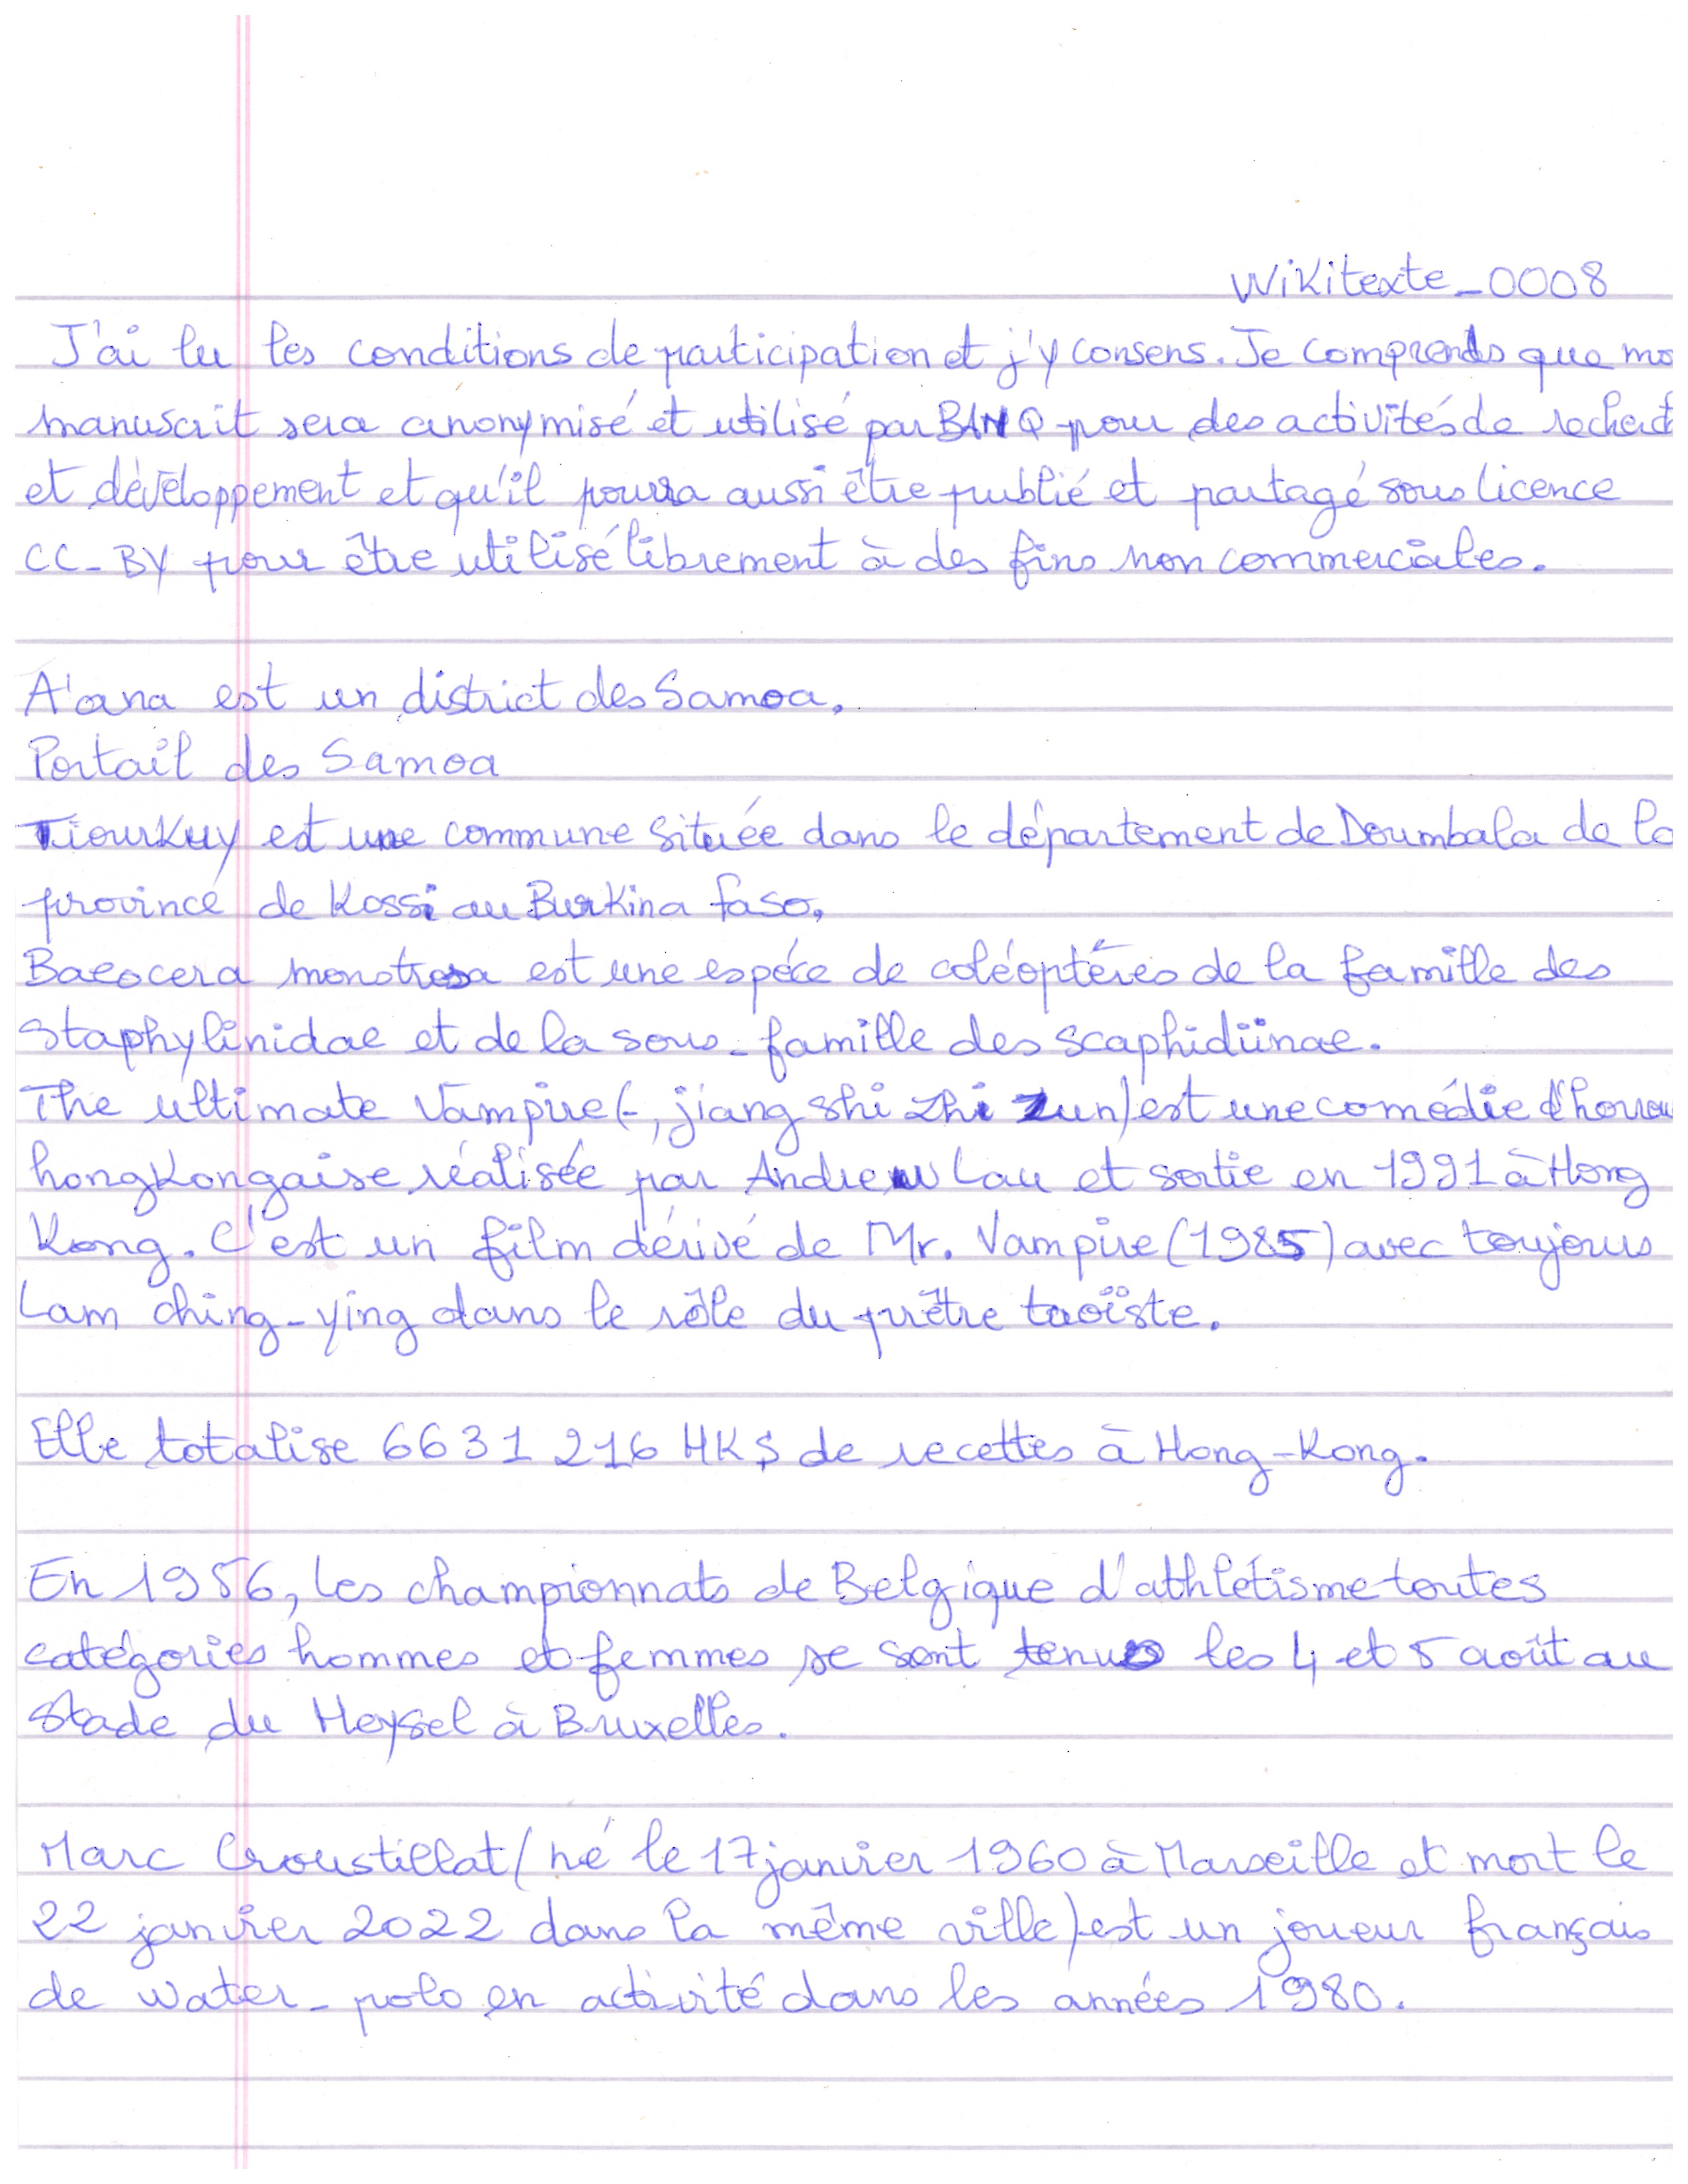 Wikitexte_0008
J'ai lu les conditions de participation et j'y consens. Je comprends que mo
manuscrit sera anonymisé et utilisé par BANQ pour des activités de recherch
et développement et qu'il pourra aussi être publié et partagé sous licence
CC-BY pour être utilisé librement à des fins non commerciales.
A'ana est un district des Samoa.
Portail des Samoa
Tiourkuy est une commune située dans le département de Doumbala de la
province de Kossi au Burkina faso.
Baeocera monstrosa est une espéce de coléoptéres de la famille des
Staphylinidae et de la sous-famille des scaphidiinae.
The ultimate Vampire (-, jiang shi zhi zun) est une comédie d'horreu
hongkongaise réalisée par Andrew Lau et sortie en 1991 à Hong
Kong. C'est un film dérivé de Mr. Vampire (1985) avec toujours
Lam ching-ying dans le rôle du prêtre taoïste.
Elle totalise 6631 216 HK$ de recettes à Hong-Kong.
En 1956, les championnats de Belgique d'athlétisme toutes
catégories hommes et femmes se sont tenus les 4 et 5 août au
stade du Heysel à Bruxelles.
Marc Croustillat (né le 17 janvier 1960 à Marseille et mort le
22 janvier 2022 dans la même ville) est un joueur français
de water-polo en activité dans les années 1980.